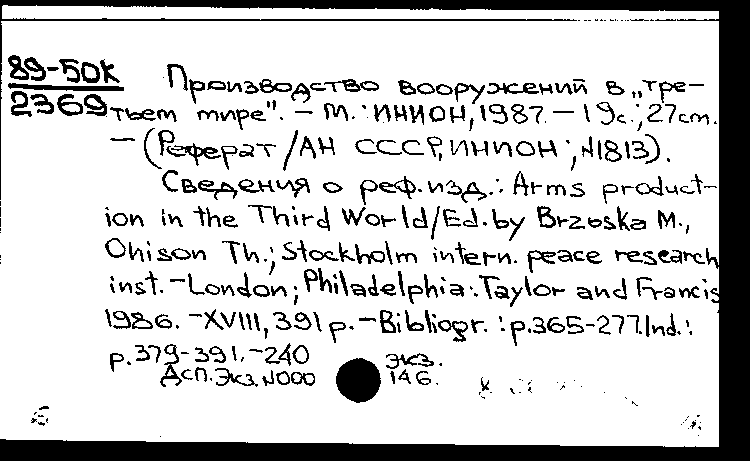 89-50К
2369
Производство вооружений в „тре-
тьем мире". – М.: ИНИОН, 1987. – 19с.; 27cm.
– (Реферат / АН СССР, ИНИОН; N1813).
Сведения о реф.изд.: Arms product-
ion in the Third World/Ed. by Brzoska M.,
Ohison Th.; Stockholm intern. peace research
inst. – London; Philadelphia: Taylor and Francis
1986. – XVIII, 391 p. – Bibliogr.: p.365-277. Ind.:
p.379-391. – 240 экз.
Дсп. Экз. N000146.